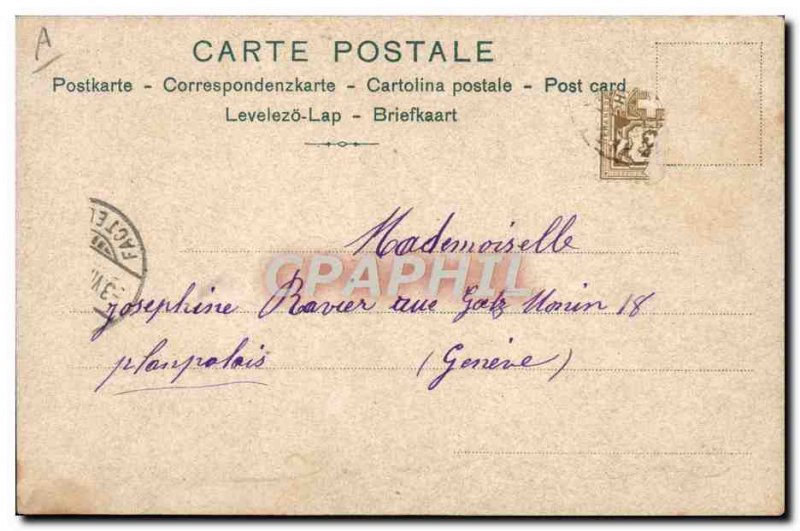 A
CARTE POSTALE
Postkarte - Correspondenzkarte - Cartolina postale - Post card
Levelezö-Lap - Briefkaart
FACTE
Mademoiselle
CPAPHIL
Josephine Ravier rue Golz Monin 18
planpalais (Genève)